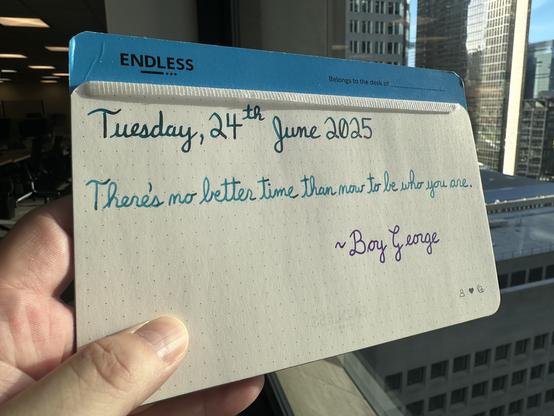 ENDLESS
Belongs to the desk of
Tuesday, 24th June 2025
There's no better time than now to be who you are.
~ Boy George